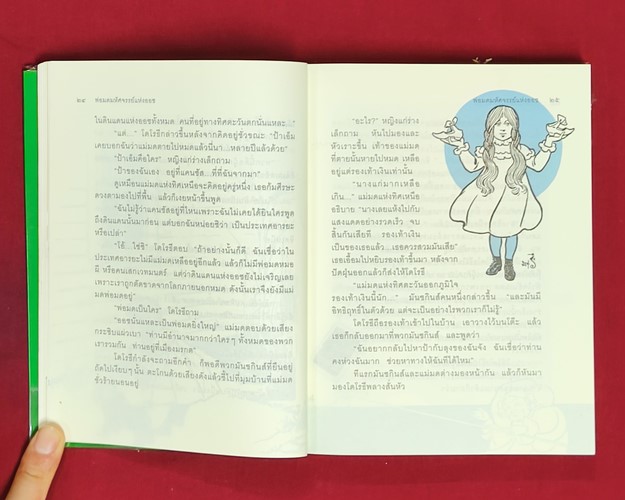 ๒๔ พ่อมดมหัศจรรย์แห่งออซ
ในดินแดนแห่งออซทั้งหมด คนที่อยู่ทางทิศตะวันตกนั่นแหละ..."
"แต่..." โดโรธีกล่าวขึ้นหลังจากคิดอยู่ชั่วขณะ "ป้าเอ็ม
เคยบอกฉันว่าแม่มดตายไปหมดแล้วนี่นา...หลายปีแล้วด้วย"
"ป้าเอ็มคือใคร" หญิงแก่ร่างเล็กถาม
"ป้าของฉันเอง อยู่ที่แคนซัส...ที่ที่ฉันจากมา"
ดูเหมือนแม่มดแห่งทิศเหนือจะคิดอยู่ครู่หนึ่ง เธอก้มศีรษะ
ดวงตามองไปที่พื้น แล้วก็เงยหน้าขึ้นพูด
"ฉันไม่รู้ว่าแคนซัสอยู่ที่ไหนเพราะฉันไม่เคยได้ยินใครพูด
ถึงดินแดนนั้นมาก่อน แต่บอกฉันหน่อยซิว่า เป็นประเทศอารยะ
หรือเปล่า"
"โอ้.. ใช่ซิ" โดโรธีตอบ "ถ้าอย่างนั้นก็ดี ฉันเชื่อว่าใน
ประเทศอารยะไม่มีแม่มดเหลืออยู่อีกแล้ว แล้วก็ไม่มีพ่อมดหมอ
ผี หรือคนเสกเวทมนตร์ แต่ว่าดินแดนแห่งออซยังไม่เจริญเลย
เพราะเราถูกตัดขาดจากโลกภายนอกหมด ดังนั้นเราจึงยังมีแม่
มดพ่อมดอยู่"
"พ่อมดเป็นใคร" โดโรธีถาม
"ออซนั่นแหละเป็นพ่อมดยิ่งใหญ่" แม่มดตอบด้วยเสียง
กระซิบแผ่วเบา "ท่านมีอำนาจมากกว่าใครๆ ทั้งหมดของพวก
เรารวมกัน ท่านอยู่ที่เมืองมรกต"
โดโรธีกำลังจะถามอีกคำ ก็พอดีพวกมันชกินส์ที่ยืนอยู่
ถัดไปเงียบๆ นั้น ตะโกนด้วยเสียงดังแล้วชี้ไปที่มุมบ้านที่แม่มด
ชั่วร้ายนอนอยู่
พ่อมดมหัศจรรย์แห่งออซ ๒๕
"อะไร?" หญิงแก่ร่าง
เล็กถาม หันไปมองและ
หัวเราะขึ้น เท้าของแม่มด
ที่ตายนั้นหายไปหมด เหลือ
อยู่แต่รองเท้าเงินเท่านั้น
"นางแก่มากเหลือ
เกิน..." แม่มดแห่งทิศเหนือ
อธิบาย "นางเลยแห้งไปกับ
แสงแดดอย่างรวดเร็ว จบ
สิ้นกันเสียที รองเท้าเงิน
เป็นของเธอแล้ว...เธอควรสวมมันเสีย"
เธอเอื้อมไปหยิบรองเท้าขึ้นมา หลังจาก
ปัดฝุ่นออกแล้วก็ส่งให้โดโรธี
"แม่มดแห่งทิศตะวันออกภูมิใจ
รองเท้าเงินนี้นัก..." มันชกินส์คนหนึ่งกล่าวขึ้น "และมันมี
อิทธิฤทธิ์ในตัวด้วย แต่จะเป็นอย่างไรพวกเราก็ไม่รู้"
โดโรธีถือรองเท้าเข้าไปในบ้าน เอาวางไว้บนโต๊ะ แล้ว
เธอก็กลับออกมาที่พวกมันชกินส์ และพูดว่า
"ฉันอยากกลับไปหาป้ากับลุงของฉันจัง ฉันเชื่อว่าท่าน
คงห่วงฉันมาก ช่วยหาทางให้ฉันทีได้ไหม"
ทีแรกมันชกินส์และแม่มดต่างมองหน้ากัน แล้วก็หันมา
มองโดโรธีพลางสั่นหัว